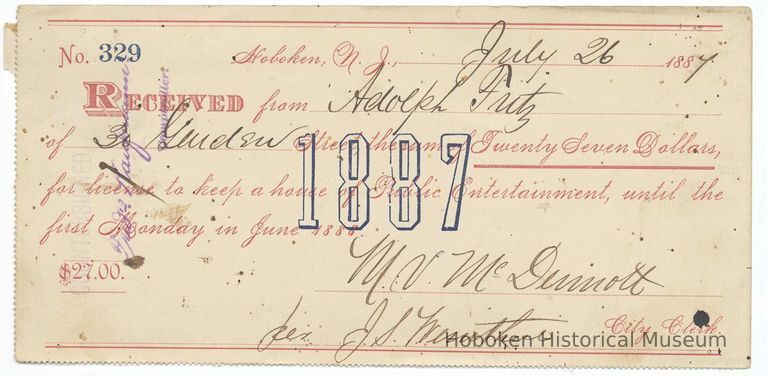 No. 329 Hoboken, N. J., July 26 1887
RECEIVED from Adolph Fritz
of Street the sum of Twenty Seven Dollars,
for license to keep a house of Public Entertainment, until the
first Monday in June 188
1887
$27.00.
M. V. McDermott
City Clerk.
per J. S.
Hoboken Historical Museum